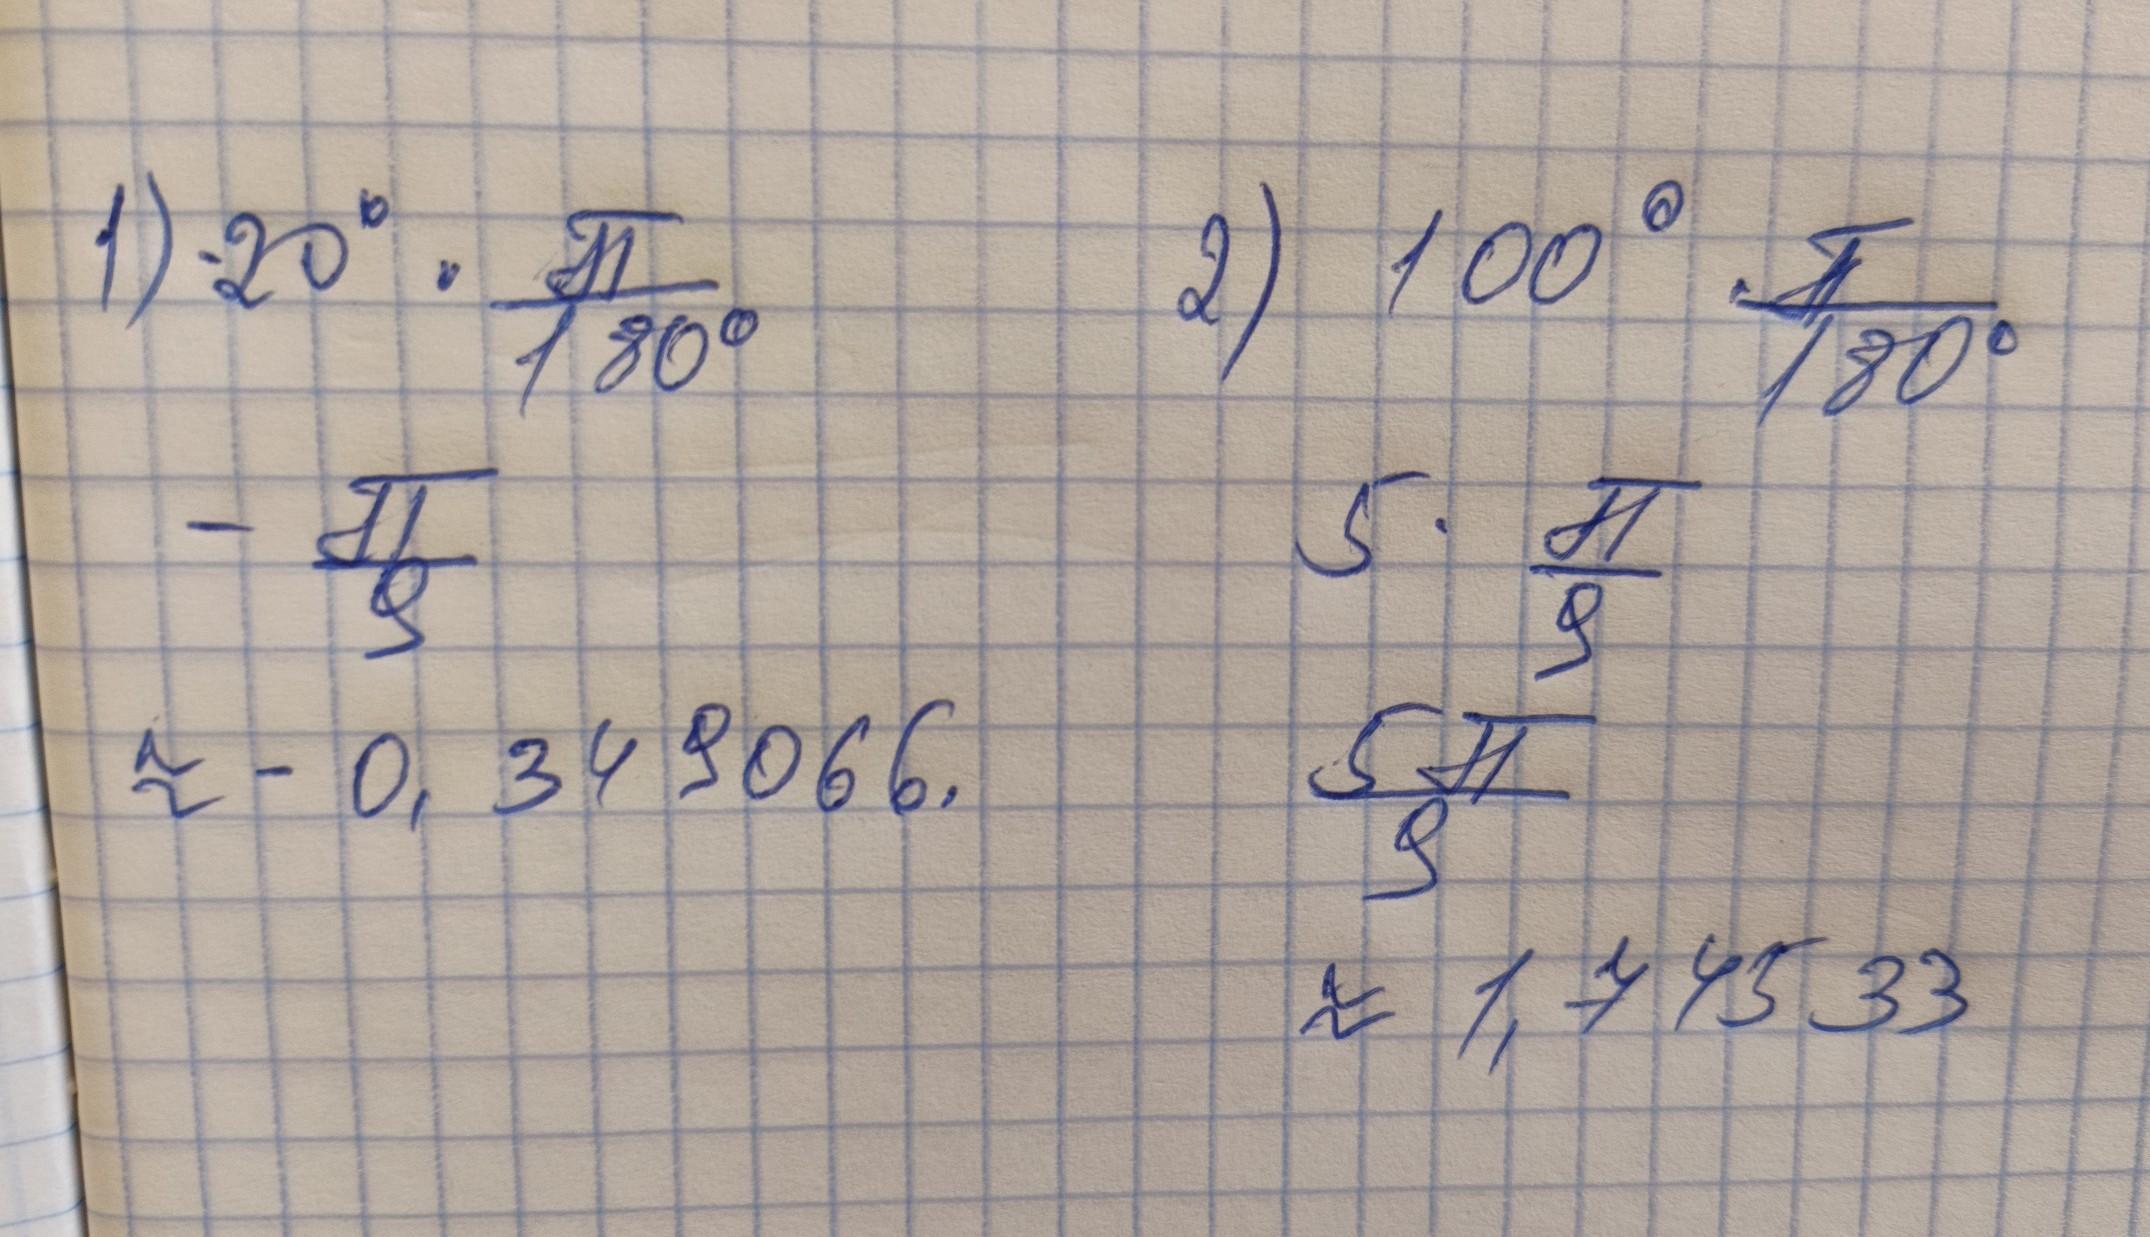 1) -20° · π/180°
- π/9
≈ - 0,349066.
2) 100° · π/180°
5 · π/9
5π/9
≈ 1,745533